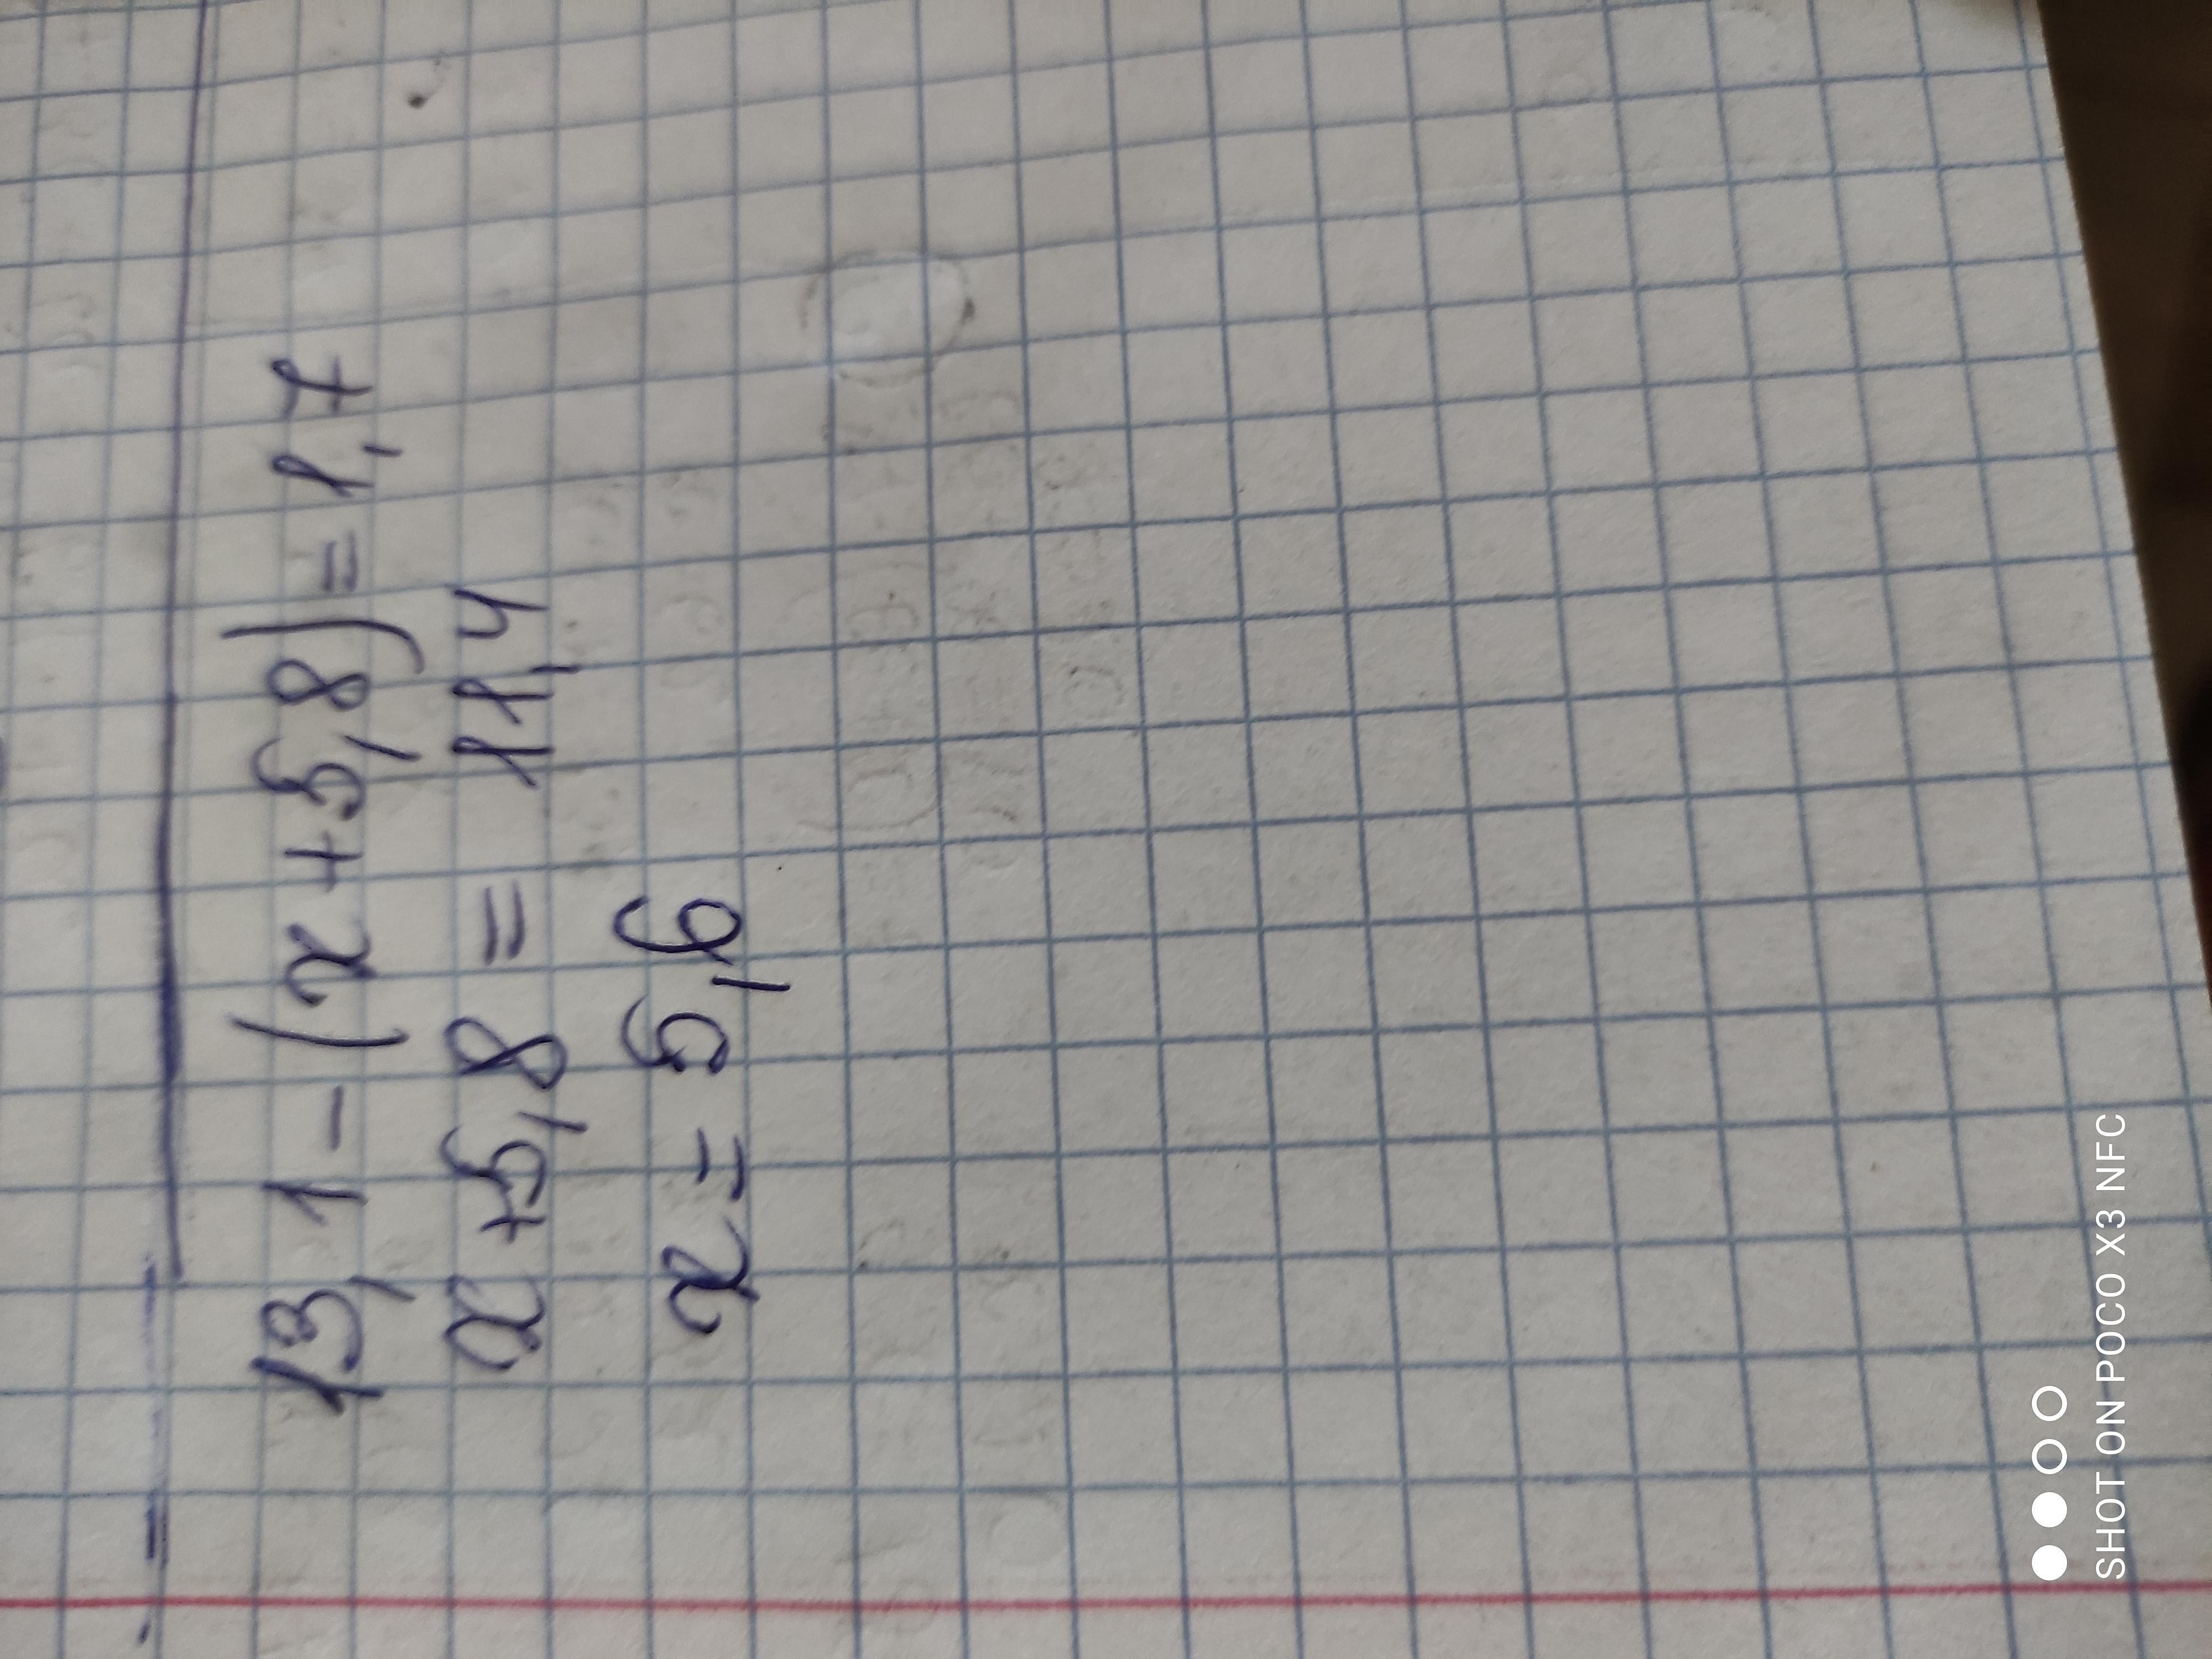 13,1-(x+5,8)=1,7
x+5,8 = 11,4
x= 5,6
SHOT ON POCO X3 NFC